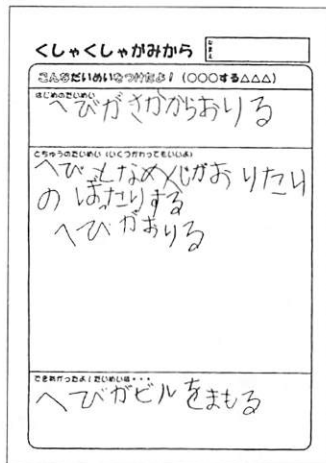 くしゃくしゃがみから
なまえ
こんなだいめいをつけたよ！（○○○する△△△）
はじめのだいめい
へびがさかからおりる
とちゅうのだいめい（いくつかわってもいいよ）
へびとなめくじがおりたり
のぼったりする
へびがおりる
できあがったよ！だいめいは・・・
へびがビルをまもる